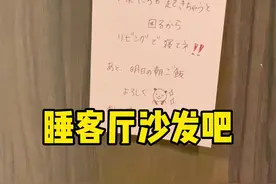 起きちゃうと
困るから
リビングで寝てネ!!
あと、明日の朝ご飯
よろしく
睡客厅沙发吧